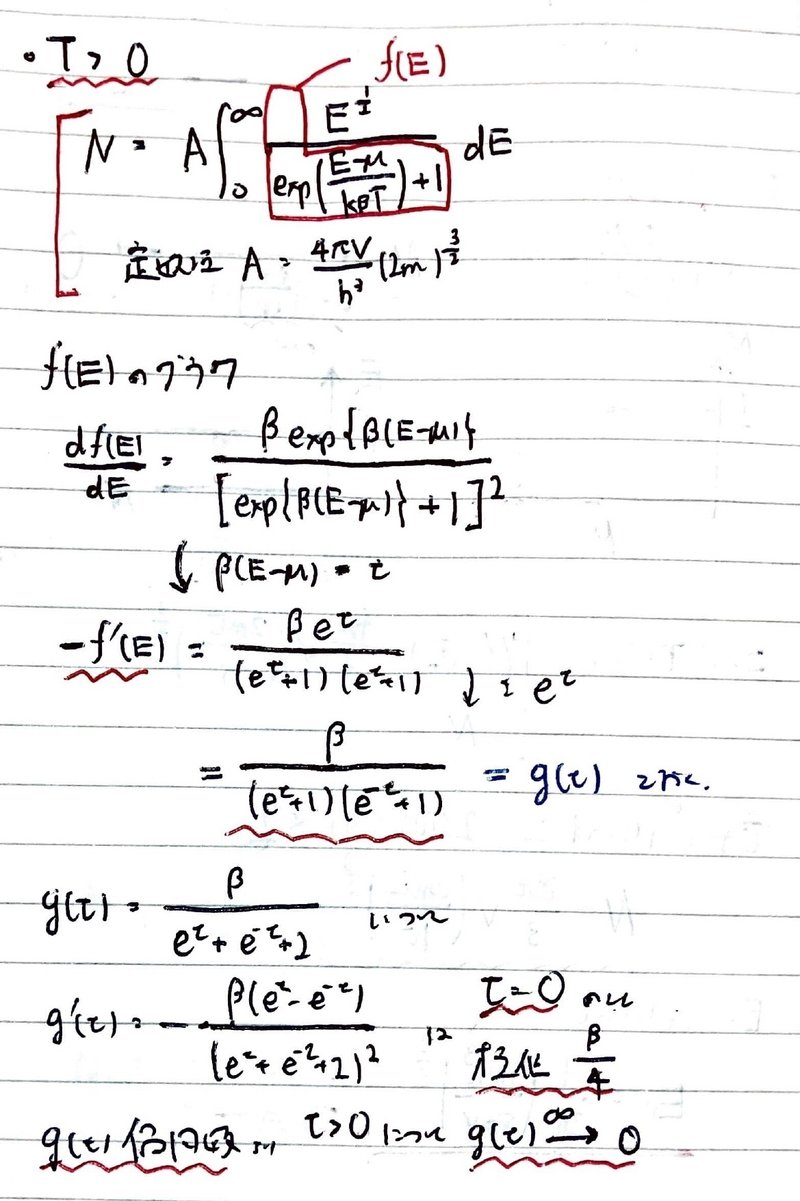 ・T > 0
f(E)
N = A∫₀^∞ E^{1/2} / (exp((E-μ)/kBT) + 1) dE
定数は A = 4πV/h³ (2m)^{3/2}
f(E)のグラフ
df(E)/dE = β exp{β(E-μ)} / [exp{β(E-μ)} + 1]²
↓ β(E-μ) = τ
-f'(E) = βe^τ / (e^τ+1)(e^τ+1) ↓ ÷ e^τ
= β / (e^τ+1)(e^{-τ}+1) = g(τ) とおく.
g(τ) = β / (e^τ + e^{-τ} + 2) について
g'(τ) = - β(e^τ - e^{-τ}) / (e^τ + e^{-τ} + 2)² は τ=0 のとき
極値 β/4
g(τ) 偶関数 τ>0 について g(τ) →^∞ 0